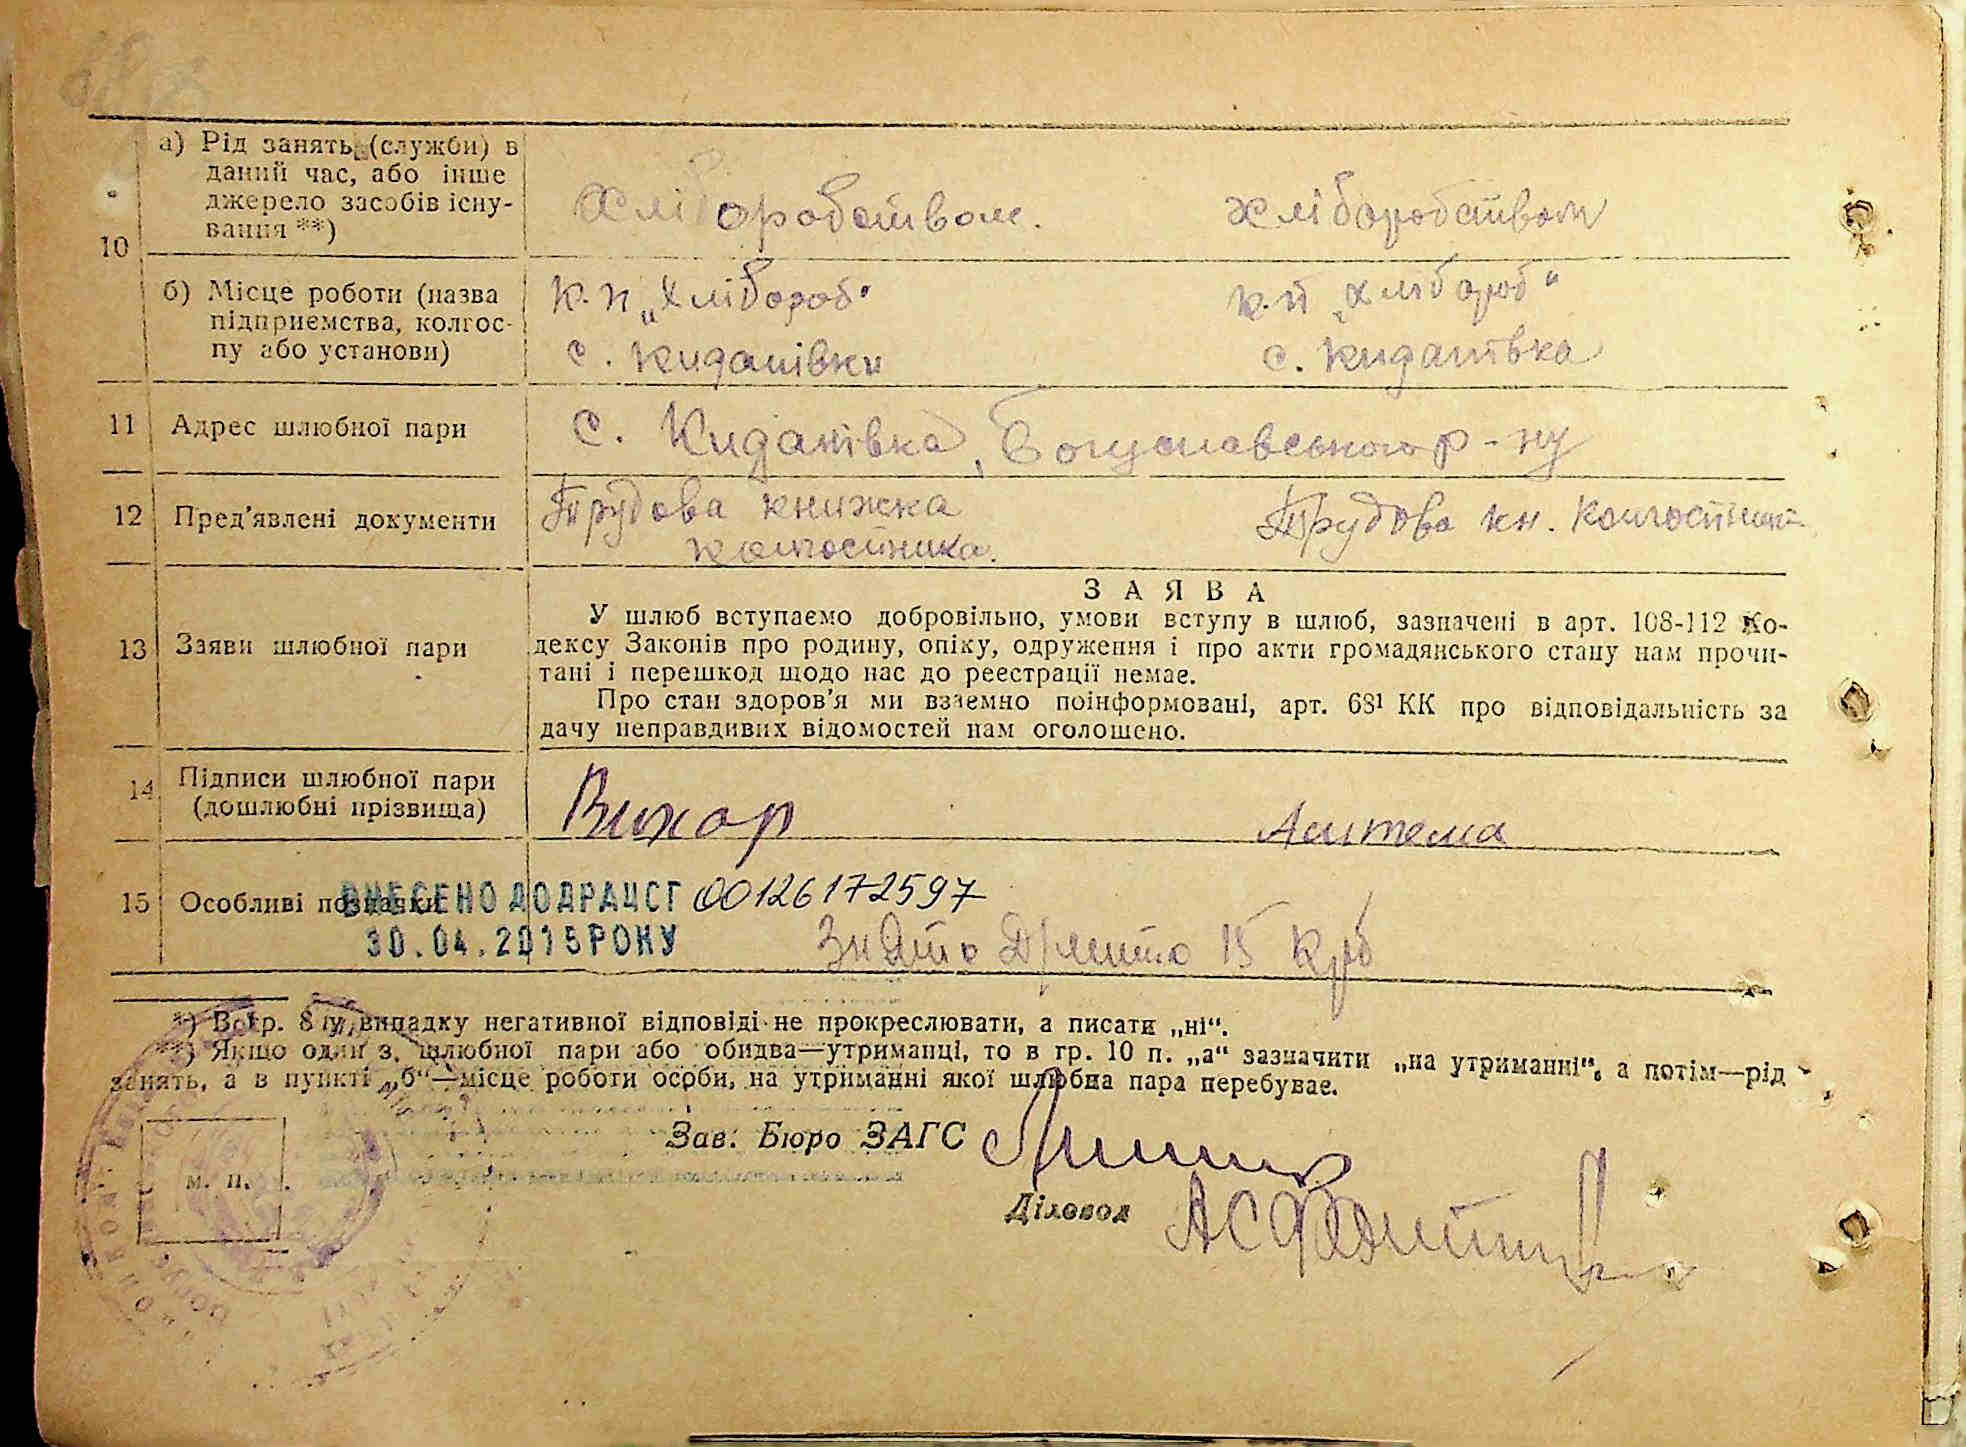 10
а) Рід занять (служби) в
даний час, або інше
джерело засобів існу-
вання **)
Хліборобством.
хліборобством
б) Місце роботи (назва
підприємства, колгос-
пу або установи)
к. п „Хлібороб“
с. Киданівки
к. п „Хлібороб“
с. Киданівка
11 Адрес шлюбної пари
с. Киданівка, Богуславського р-ну
12 Пред'явлені документи
Трудова книжка
колгоспника.
Трудова кн. колгоспниці
13 Заяви шлюбної пари
ЗАЯВА
У шлюб вступаємо добровільно, умови вступу в шлюб, зазначені в арт. 108-112 Ко-
дексу Законів про родину, опіку, одруження і про акти громадянського стану нам прочи-
тані і перешкод щодо нас до реестрації немає.
Про стан здоров'я ми взаємно поінформовані, арт. 68¹ КК про відповідальність за
дачу неправдивих відомостей нам оголошено.
14 Підписи шлюбної пари
(дошлюбні прізвища)
Вихор
15 Особливі познавки
ВНЕСЕНО ДО ДРАЦСГ 00126172597
30.04.2015 РОКУ
15 крб
*) В гр. 8 у випадку негативної відповіді не прокреслювати, а писати „ні“.
**) Якщо один з шлюбної пари або обидва—утриманці, то в гр. 10 п. „а“ зазначити „на утриманні“, а потім—рід
занять, а в пункті „б“—місце роботи особи, на утриманні якої шлюбна пара перебуває.
Зав. Бюро ЗАГС
м. п.
Діловод